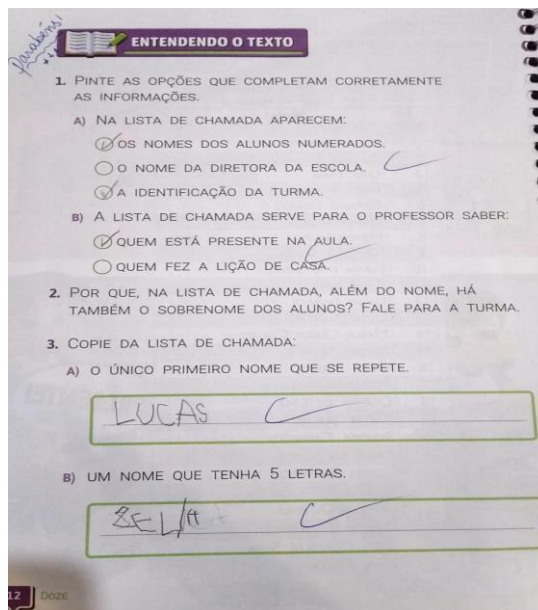 Parabéns!
ENTENDENDO O TEXTO
1. PINTE AS OPÇÕES QUE COMPLETAM CORRETAMENTE
AS INFORMAÇÕES.
A) NA LISTA DE CHAMADA APARECEM:
OS NOMES DOS ALUNOS NUMERADOS.
O NOME DA DIRETORA DA ESCOLA.
A IDENTIFICAÇÃO DA TURMA.
B) A LISTA DE CHAMADA SERVE PARA O PROFESSOR SABER:
QUEM ESTÁ PRESENTE NA AULA.
QUEM FEZ A LIÇÃO DE CASA.
2. POR QUE, NA LISTA DE CHAMADA, ALÉM DO NOME, HÁ
TAMBÉM O SOBRENOME DOS ALUNOS? FALE PARA A TURMA.
3. COPIE DA LISTA DE CHAMADA:
A) O ÚNICO PRIMEIRO NOME QUE SE REPETE.
LUCAS
B) UM NOME QUE TENHA 5 LETRAS.
12 DOZE